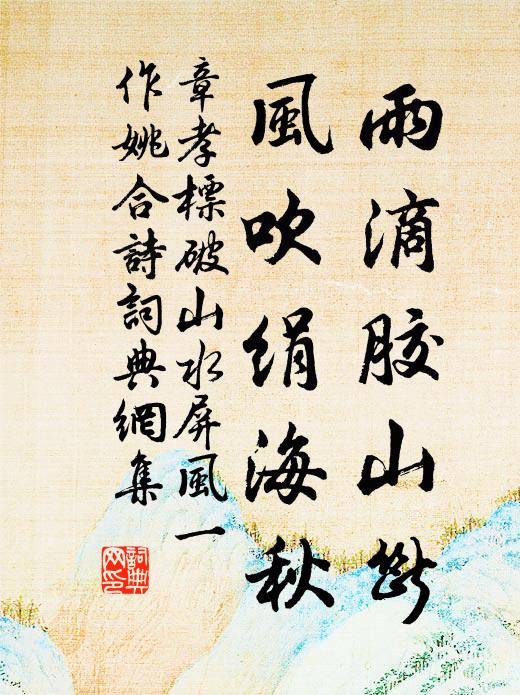 雨滴胶山斷
風吹絹海秋
章孝標破山水屏風一
作姚合詩詞典網集
詞典
网印